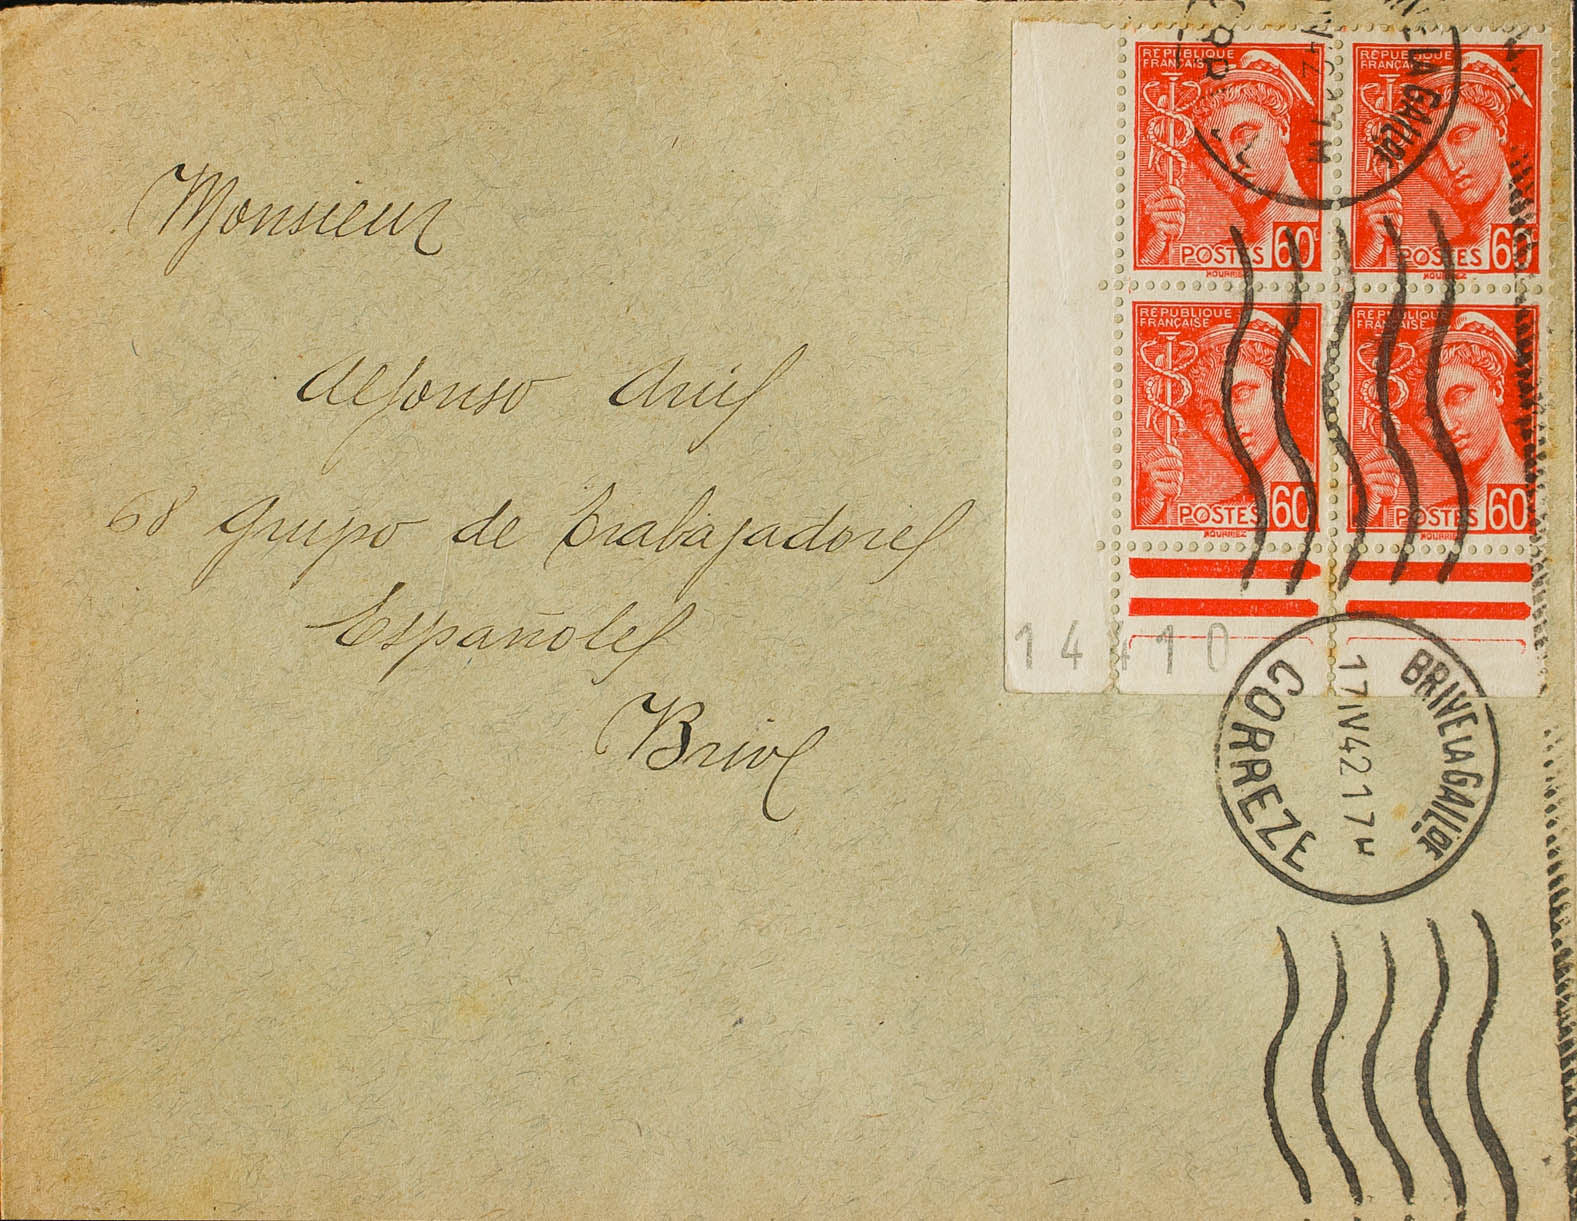 Monsieur
Alfonso
68 grupo de trabajadores
Españoles
Brive
RÉPUBLIQUE
FRANÇAISE
POSTES 60
MOURRIEZ
RÉPUBLIQUE
FRANÇAISE
POSTES 60
MOURRIEZ
RÉPUBLIQUE
FRANÇAISE
POSTES 60
MOURRIEZ
RÉPUBLIQUE
FRANÇAISE
POSTES 60
MOURRIEZ
LA GAILDE
14410
BRIVE LA GAILDE
17 IV 42 17 H
CORREZE